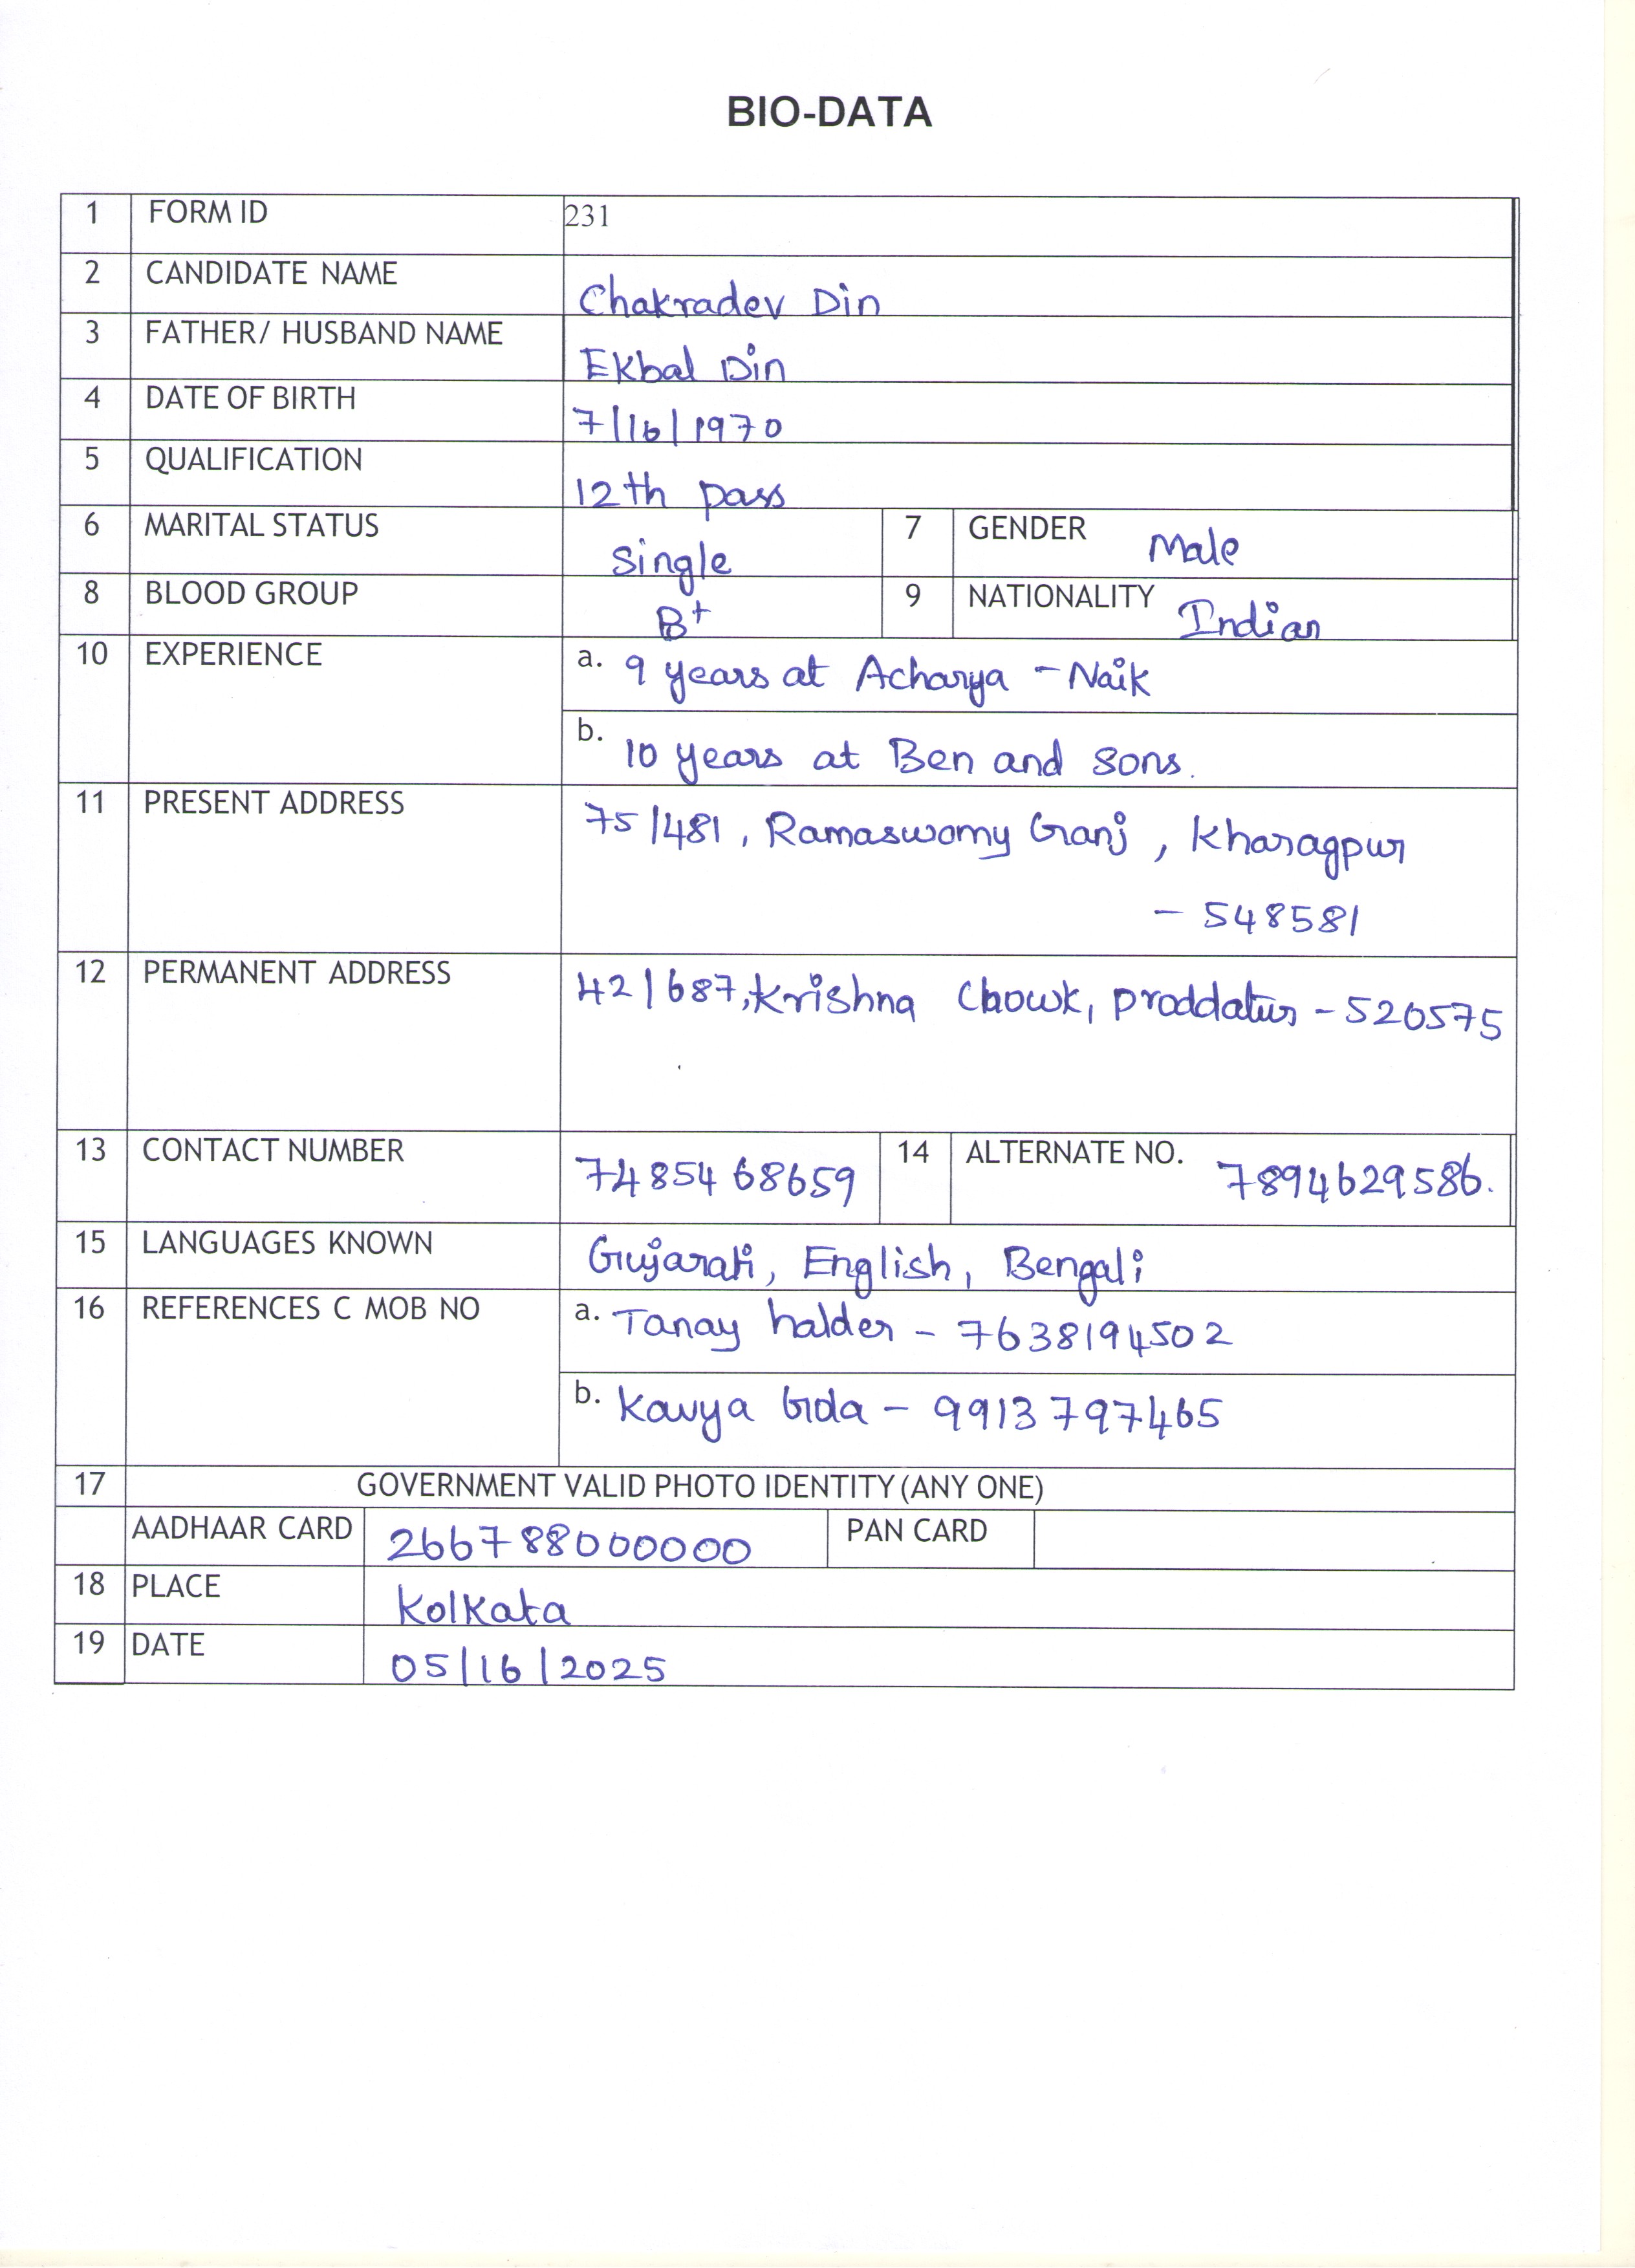 BIO-DATA
1 FORM ID 231
2 CANDIDATE NAME Chakradev Din
3 FATHER/ HUSBAND NAME Ekbal Din
4 DATE OF BIRTH 7/16/1970
5 QUALIFICATION 12th pass
6 MARITAL STATUS Single 7 GENDER Male
8 BLOOD GROUP B+ 9 NATIONALITY Indian
10 EXPERIENCE a. 9 years at Acharya - Naik
b. 10 years at Ben and sons.
11 PRESENT ADDRESS 75/481, Ramaswamy Ganj, Kharagpur
- 548581
12 PERMANENT ADDRESS 42/687, Krishna Chowk, Proddatur - 520575
13 CONTACT NUMBER 7485468659 14 ALTERNATE NO. 7894629586.
15 LANGUAGES KNOWN Gujarati, English, Bengali
16 REFERENCES C MOB NO a. Tanay halder - 7638194502
b. Kavya Goda - 9913797465
17 GOVERNMENT VALID PHOTO IDENTITY (ANY ONE)
AADHAAR CARD 266788000000 PAN CARD
18 PLACE Kolkata
19 DATE 05/16/2025